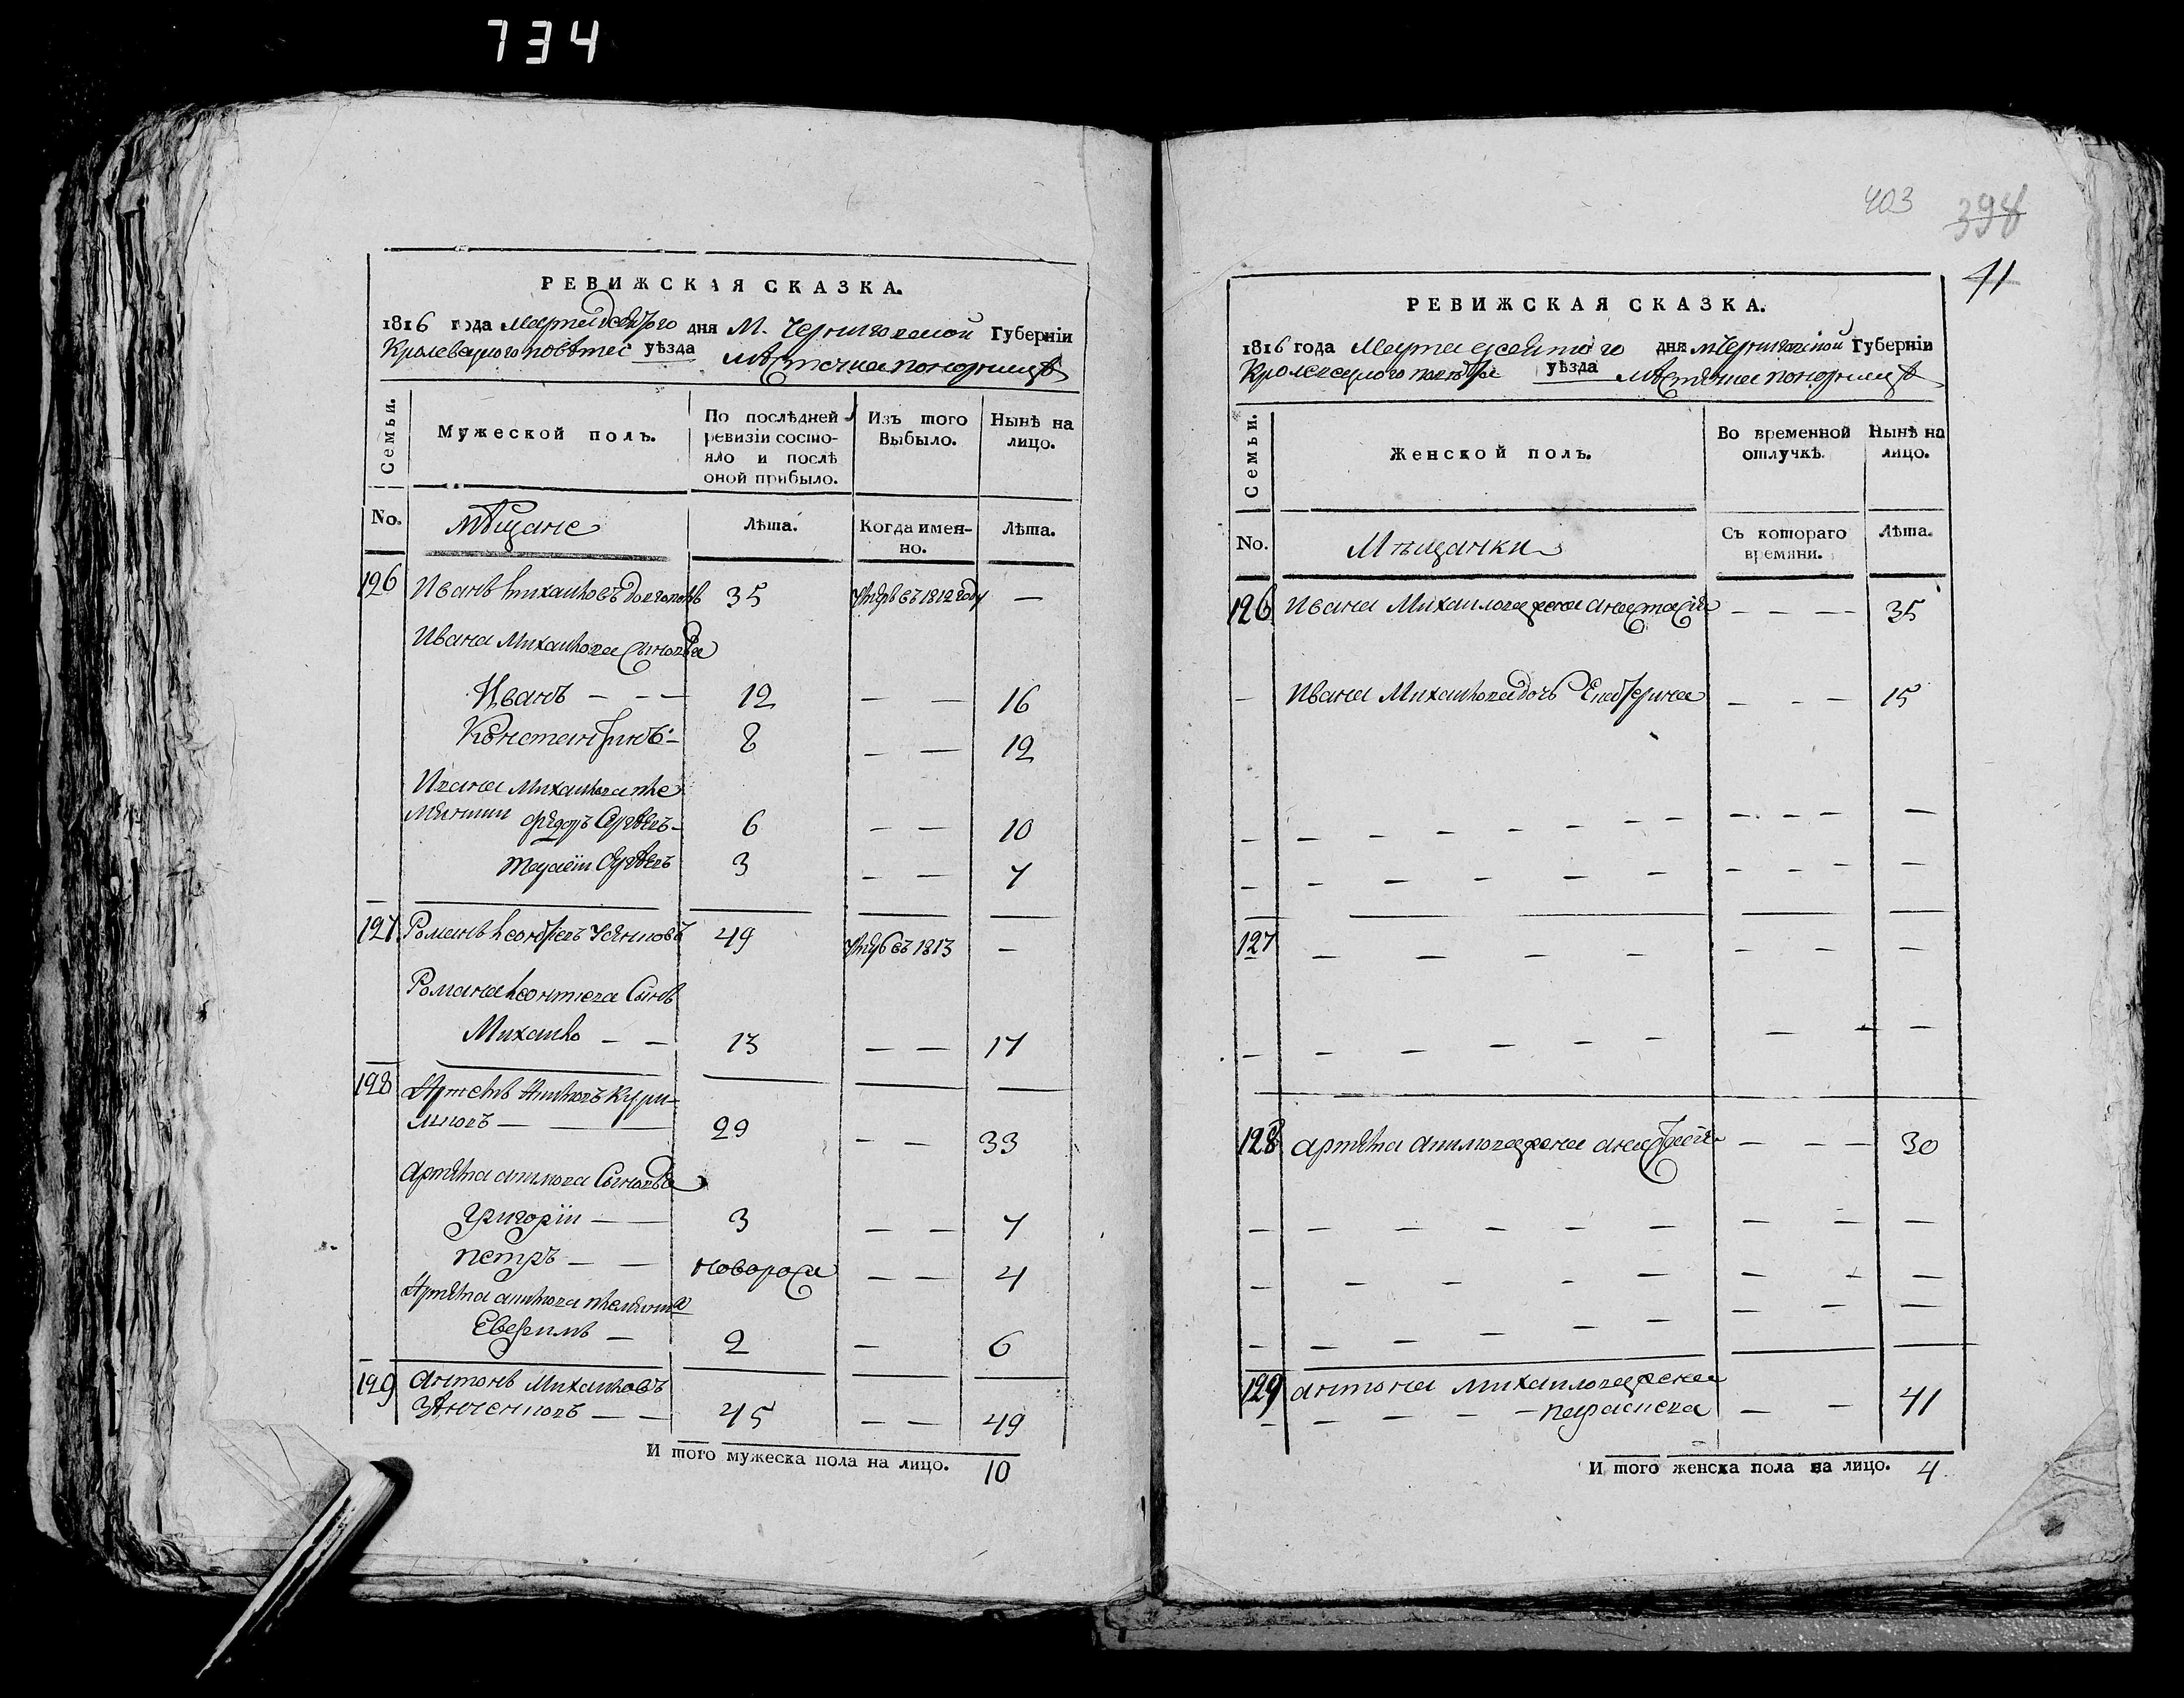 734
РЕВИЖСКАЯ СКАЗКА.
1816 года Марта десятого дня М. Черниговской Губерніи
Кролевецкого повѣта уѣзда Мѣстечка Понорницѣ
Семьи.
Мужеской полъ.
По послѣдней ревизіи состо-
яло и послѣ оной прибыло.
Изъ того Выбыло.
Нынѣ на лицо.
No.
мѣщане
Лѣта.
Когда имен-
но.
Лѣта.
126 Иванъ Михайловъ 35 умре въ 1812 году —
Ивана Михайлова Сыновья
Иванъ — — — 12 — — 16
Константинъ — 8 — — 12
Ивана Михайлова пле
мянники Федоръ Сергѣевъ — 6 — — 10
Сергѣевъ 3 — — 7
127 Романъ Леонтьевъ 49 умре въ 1813 —
Романа Леонтьева Сынъ
Михайло — — 13 — — 17
128 Артемъ
— — 29 — — 33
Артема Сыновья
Григоріи — — 3 — — 7
петръ — — новорож 4
Артема племянникъ
Евфимъ — 2 — 6
129 Антонъ Михайловъ
— — 45 — — 49
И того мужеска пола на лицо. 10
403 398
41
РЕВИЖСКАЯ СКАЗКА.
1816 года Марта десятого дня М Черниговской Губерніи
Кролевецкого повѣта уѣзда Мѣстечка Понорницѣ
Семьи.
Женской полъ.
Во временной отлучкѣ.
Нынѣ на лицо.
No.
Мѣщанки
Съ котораго времяни.
Лѣта.
126 Ивана Михайлова жена анастасія — — — 35
— Ивана Михайлова дочь Екатерина — — — 15
127 — — — —
128 артема жена анастасія — — — 30
129 антона михайлова жена
— — — — — параскева — — 41
И того женска пола на лицо. 4